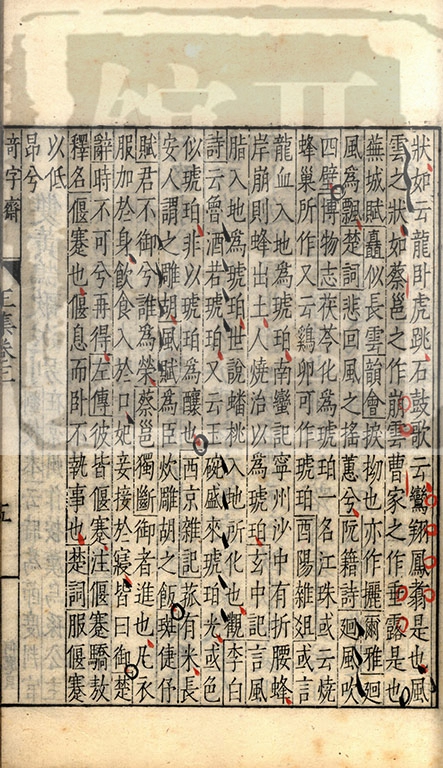 狀如云龍卧虎跳石鼓歌云鸞翔鳳翥是也風
雲之狀如蔡邕之作前雲曹家之作垂露是也
蕪城賦矗似長雲韻會挨抝也亦作攦爾雅廻
風為飄楚詞悲回風之搖蕙兮阮籍詩廻風吹
四壁博物志茯苓化為琥珀一名江珠或云燒
蜂巢所作又云鷄卯可作琥珀酉陽雜俎或言
龍血入地為琥珀南蠻記寧州沙中有折腰蜂
岸崩則蜂出土人燒治以為琥珀玄中記言風
脂入地為琥珀世說蟠桃入地所化也觀李白
詩云魯酒若琥珀又云玉碗盛來琥珀光或色
似琥珀非以琥珀為釀也西京雜記菰有米長
安人謂之雕胡風賦為臣炊雕胡之飯班倢伃
賦君不御兮誰為榮蔡邕獨斷御者進也凡衣
服加於身飲食入於口妃妾接於寢皆曰御楚
辭時不可兮再得左傳彼皆偃蹇注偃蹇驕敖
釋名偃蹇也偃息而卧不執事也楚詞服偃蹇
以低昂兮
奇字齋
五